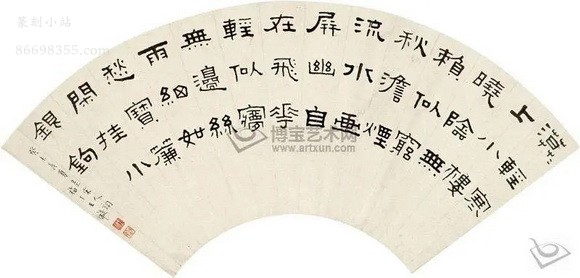 篆刻小站
86698355.com
漠〻輕寒
上小樓
曉陰無
賴似窮
秋澹煙
流水畫
屏幽自
在飛花
輕似夢
無邊絲
雨細如
愁寶簾
閑挂小
銀鉤
博宝艺术网
www.artxun.com